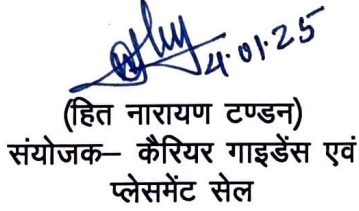 4.01.25
(हित नारायण टण्डन)
संयोजक– कैरियर गाइडेंस एवं
प्लेसमेंट सेल